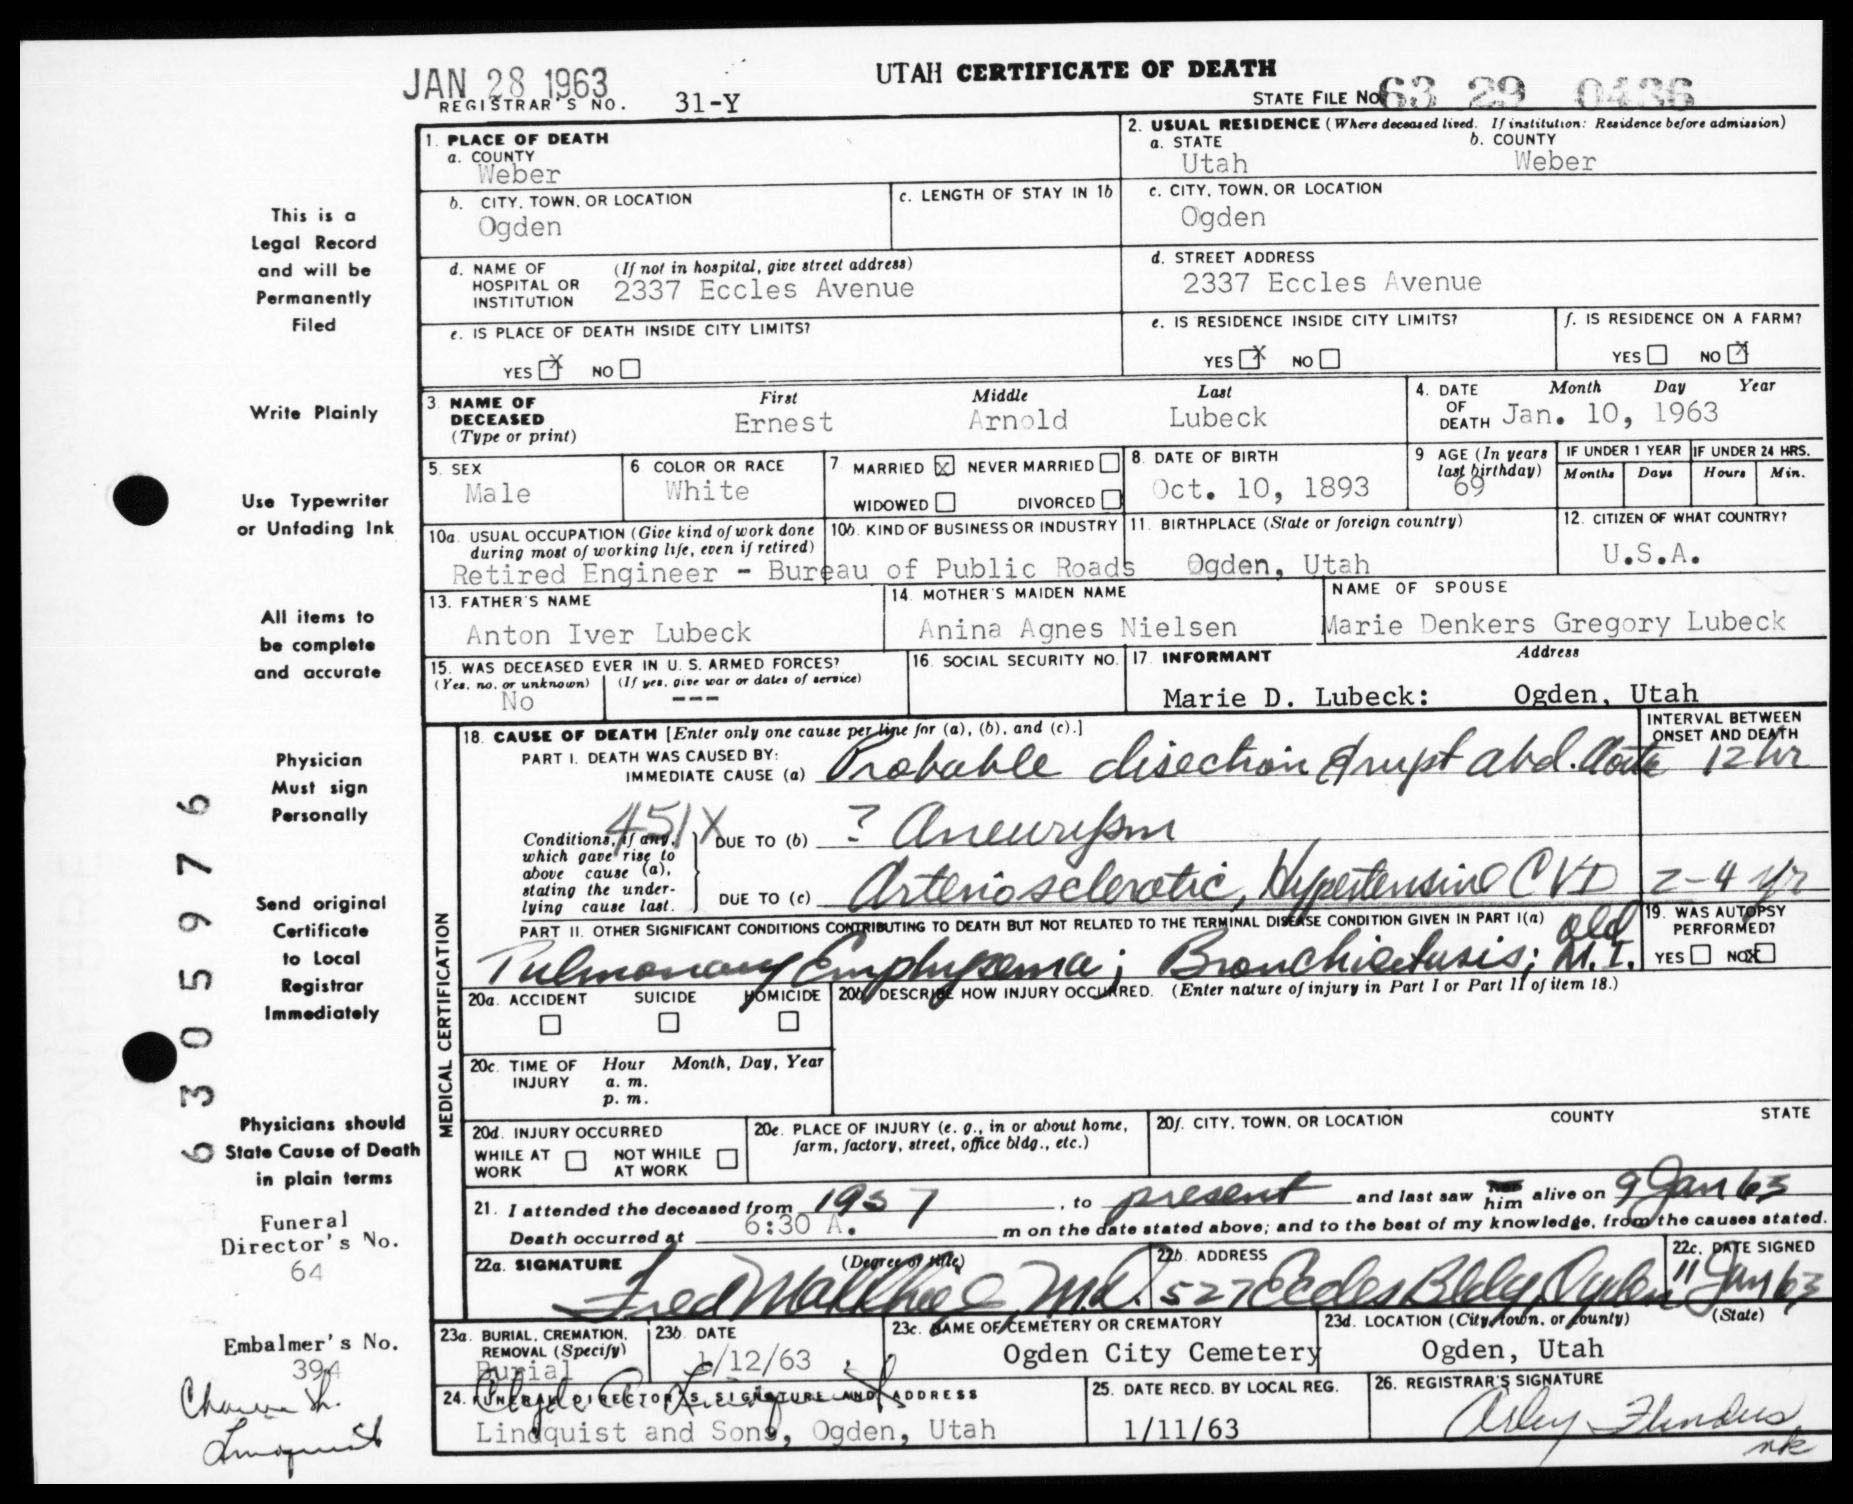 JAN 28 1963
UTAH CERTIFICATE OF DEATH
REGISTRAR'S NO. 31-Y
STATE FILE NO. 63 29 0436
This is a
Legal Record
and will be
Permanently
Filed
Write Plainly
Use Typewriter
or Unfading Ink
All items to
be complete
and accurate
Physician
Must sign
Personally
Send original
Certificate
to Local
Registrar
Immediately
Physicians should
State Cause of Death
in plain terms
Funeral
Director's No.
64
Embalmer's No.
394
6305976
1. PLACE OF DEATH
a. COUNTY
Weber
2. USUAL RESIDENCE (Where deceased lived. If institution: Residence before admission)
a. STATE b. COUNTY
Utah Weber
b. CITY, TOWN, OR LOCATION
Ogden
c. LENGTH OF STAY IN 1b
c. CITY, TOWN, OR LOCATION
Ogden
d. NAME OF (If not in hospital, give street address)
HOSPITAL OR
INSTITUTION 2337 Eccles Avenue
d. STREET ADDRESS
2337 Eccles Avenue
e. IS PLACE OF DEATH INSIDE CITY LIMITS?
YES X NO
e. IS RESIDENCE INSIDE CITY LIMITS?
YES X NO
f. IS RESIDENCE ON A FARM?
YES NO X
3. NAME OF DECEASED (Type or print)
First Middle Last
Ernest Arnold Lubeck
4. DATE OF DEATH Month Day Year
Jan. 10, 1963
5. SEX
Male
6. COLOR OR RACE
White
7. MARRIED X NEVER MARRIED
WIDOWED DIVORCED
8. DATE OF BIRTH
Oct. 10, 1893
9 AGE (In years last birthday)
69
IF UNDER 1 YEAR
Months Days
IF UNDER 24 HRS.
Hours Min.
10a. USUAL OCCUPATION (Give kind of work done
during most of working life, even if retired)
10b. KIND OF BUSINESS OR INDUSTRY
Retired Engineer - Bureau of Public Roads
11. BIRTHPLACE (State or foreign country)
Ogden, Utah
12. CITIZEN OF WHAT COUNTRY?
U.S.A.
13. FATHER'S NAME
Anton Iver Lubeck
14. MOTHER'S MAIDEN NAME
Anina Agnes Nielsen
NAME OF SPOUSE
Marie Denkers Gregory Lubeck
15. WAS DECEASED EVER IN U. S. ARMED FORCES?
(Yes, no, or unknown) (If yes, give war or dates of service)
No ---
16. SOCIAL SECURITY NO.
17. INFORMANT Address
Marie D. Lubeck: Ogden, Utah
MEDICAL CERTIFICATION
18. CAUSE OF DEATH [Enter only one cause per line for (a), (b), and (c).]
INTERVAL BETWEEN
ONSET AND DEATH
PART I. DEATH WAS CAUSED BY:
IMMEDIATE CAUSE (a) Probable disection & rupt abd. Aorta 12 hr
451X
Conditions, if any,
which gave rise to
above cause (a),
stating the under-
lying cause last.
DUE TO (b) ? Aneurysm
DUE TO (c) Arteriosclerotic, Hypertensive CVD 2-4 yr
PART II. OTHER SIGNIFICANT CONDITIONS CONTRIBUTING TO DEATH BUT NOT RELATED TO THE TERMINAL DISEASE CONDITION GIVEN IN PART I(a)
Pulmonary Emphysema; Bronchiectasis; old M.I.
19. WAS AUTOPSY
PERFORMED?
YES NO X
20a. ACCIDENT SUICIDE HOMICIDE
20b. DESCRIBE HOW INJURY OCCURRED. (Enter nature of injury in Part I or Part II of item 18.)
20c. TIME OF INJURY Hour Month, Day, Year
a. m.
p. m.
20d. INJURY OCCURRED
WHILE AT WORK NOT WHILE AT WORK
20e. PLACE OF INJURY (e. g., in or about home,
farm, factory, street, office bldg., etc.)
20f. CITY, TOWN, OR LOCATION COUNTY STATE
21. I attended the deceased from 1957, to present and last saw him alive on 9 Jan 63
Death occurred at 6:30 A. m on the date stated above; and to the best of my knowledge, from the causes stated.
22a. SIGNATURE (Degree or title)
Fred Matthews M.D.
22b. ADDRESS
527 Eccles Bldg, Ogden
22c. DATE SIGNED
11 Jan 63
23a. BURIAL, CREMATION,
REMOVAL (Specify)
Burial
23b. DATE
1/12/63
23c. NAME OF CEMETERY OR CREMATORY
Ogden City Cemetery
23d. LOCATION (City, town, or county) (State)
Ogden, Utah
24. FUNERAL DIRECTOR'S SIGNATURE AND ADDRESS
Lindquist and Sons, Ogden, Utah
25. DATE RECD. BY LOCAL REG.
1/11/63
26. REGISTRAR'S SIGNATURE
nk